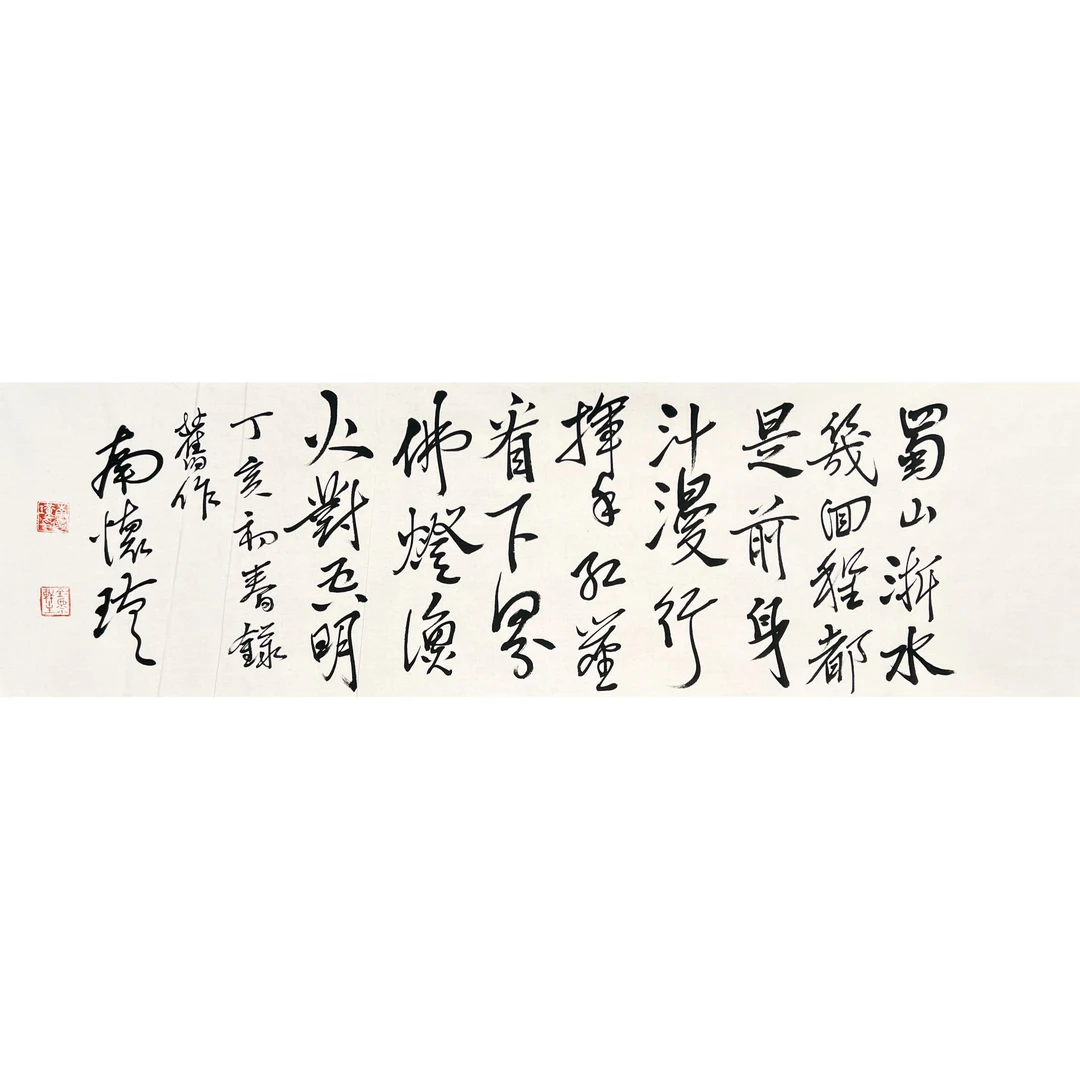 蜀山浙水
幾回程都
是前身
汗漫行
揮手紅塵
看下界
佛燈漁
火對明
丁亥初春錄
舊作
南懷瑾